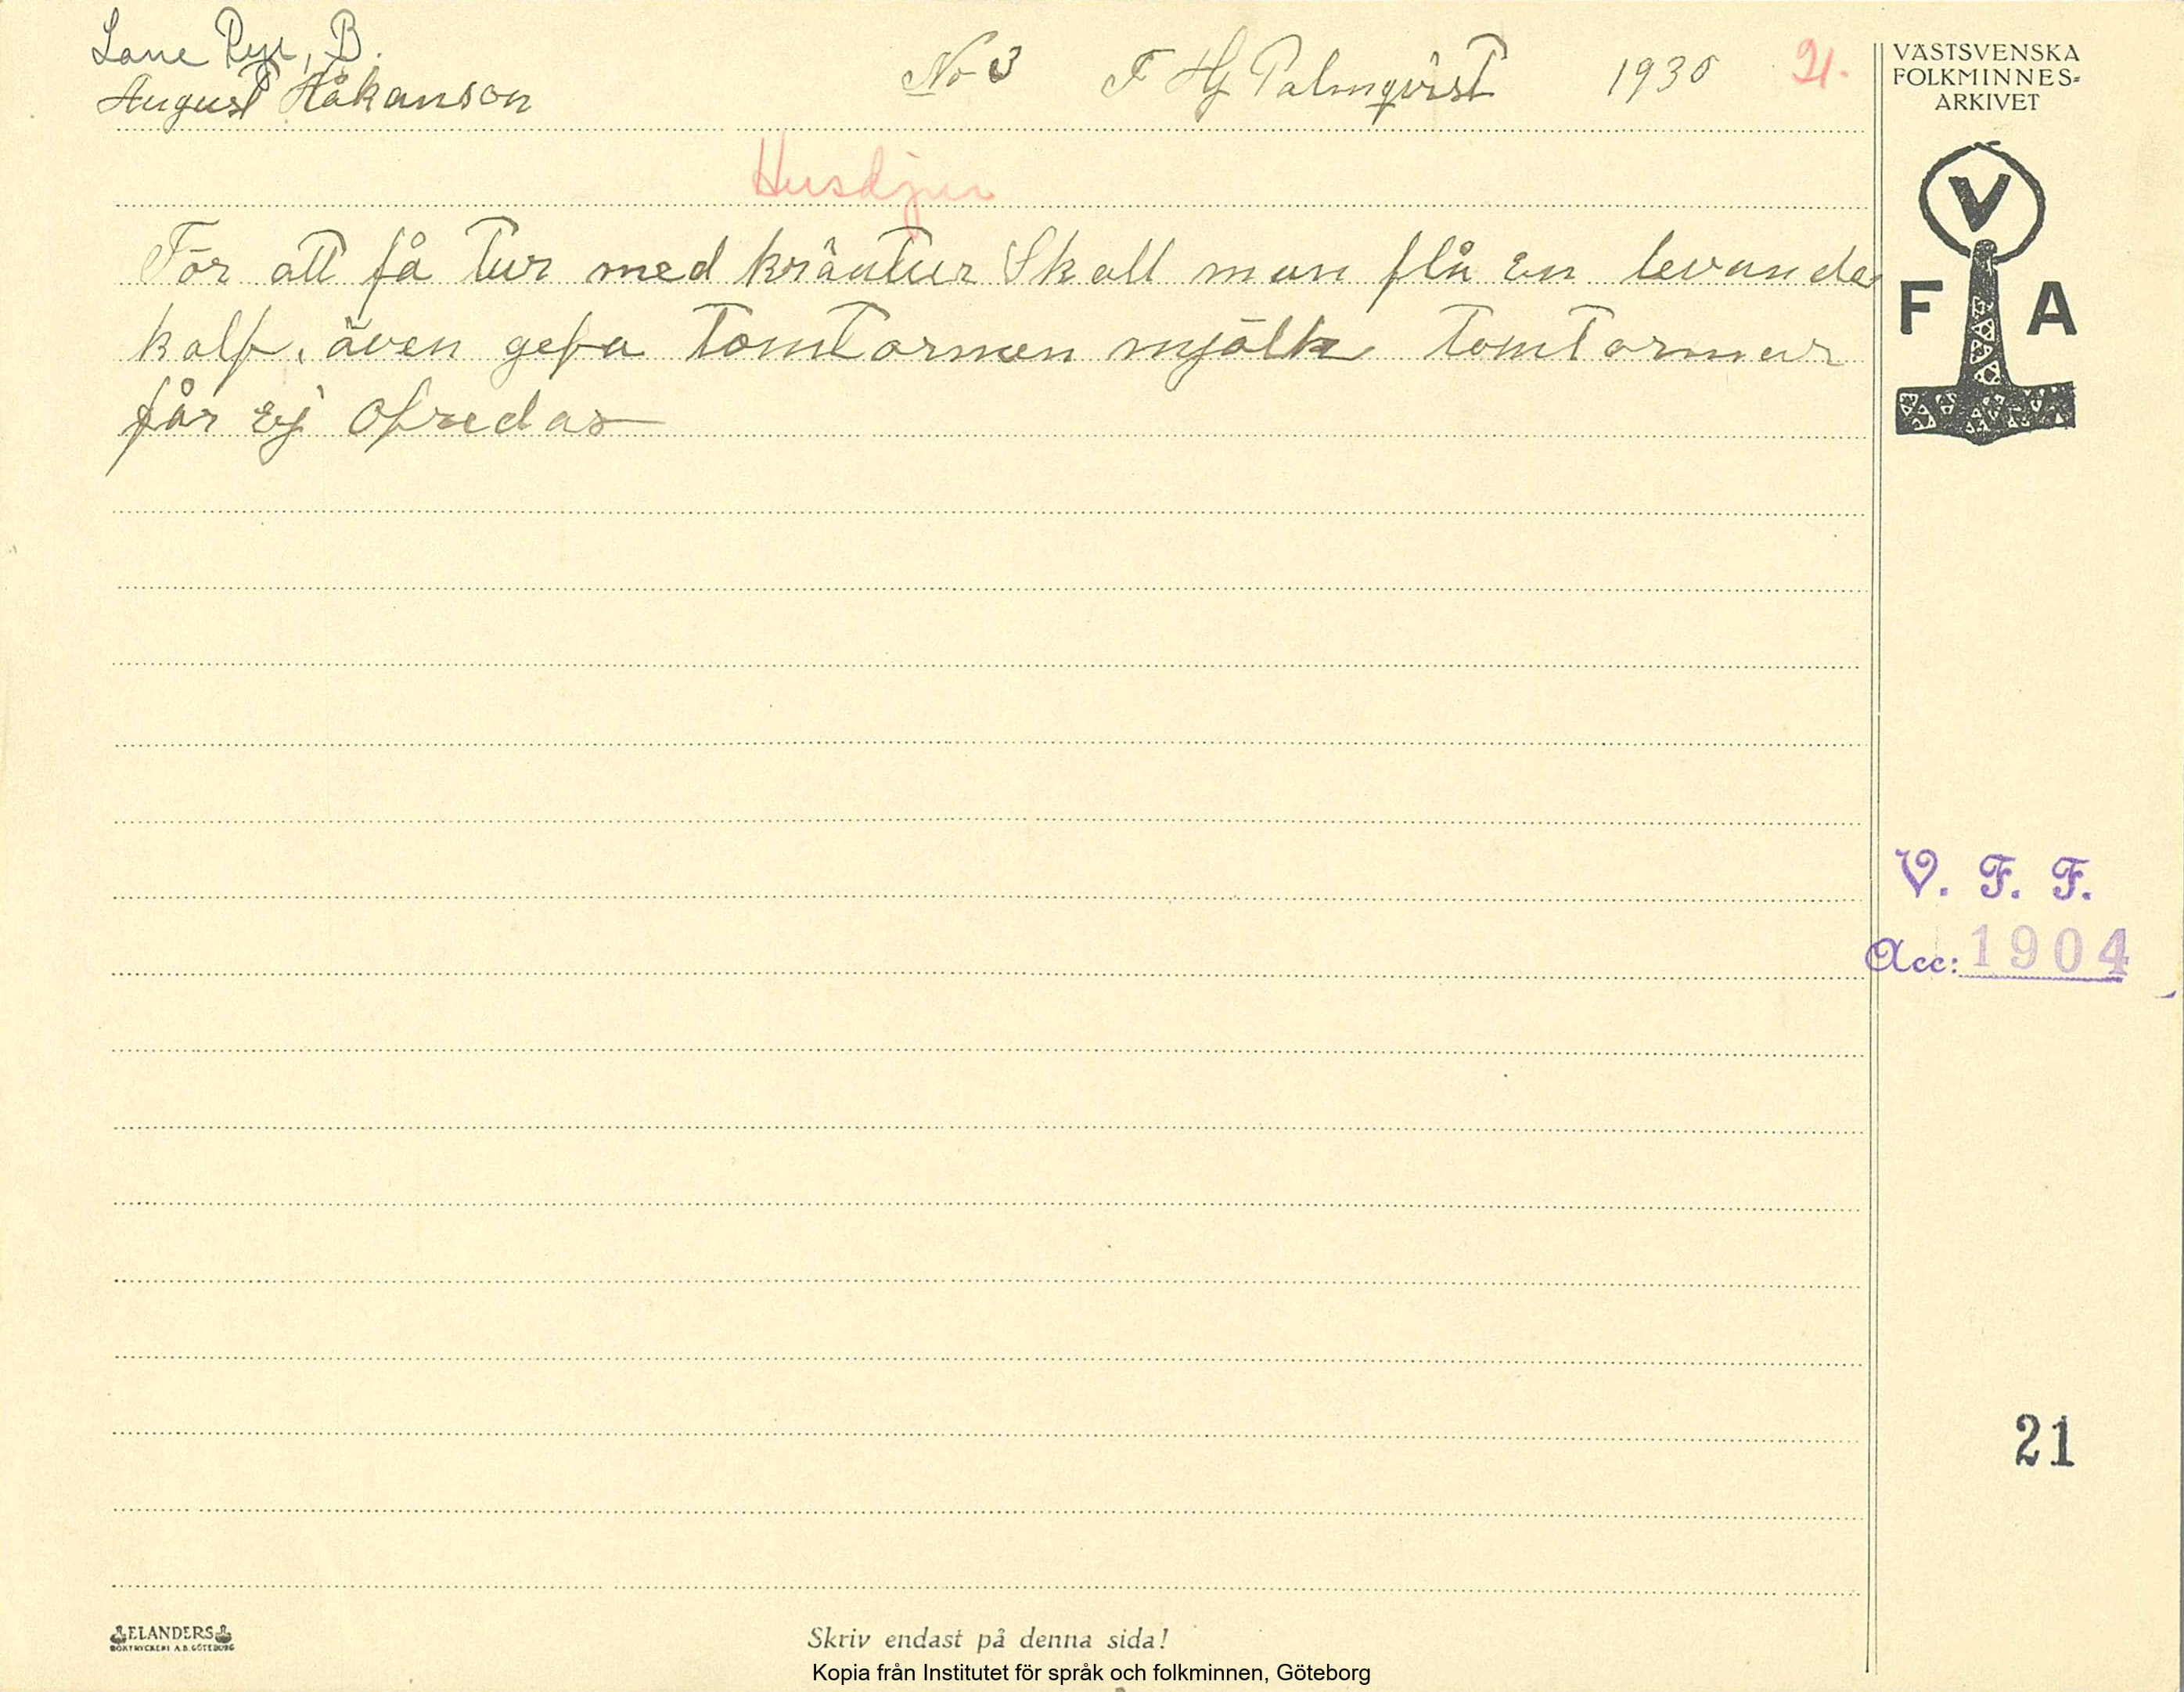 Lane Ryr, B.
August Håkanson No 3 F Hj Palmqvist 1930 21.
Husdjur
För att få tur med kräatur Skall man flå en levande
kalf, även gefa Tomtormen mjölk Tomtormar
får ej Ofredas
VÄSTSVENSKA
FOLKMINNES-
ARKIVET
V
F A
V. F. F.
Acc: 1904
21
ELANDERS
BOKTRYCKERI A.B. GÖTEBORG
Skriv endast på denna sida!
Kopia från Institutet för språk och folkminnen, Göteborg